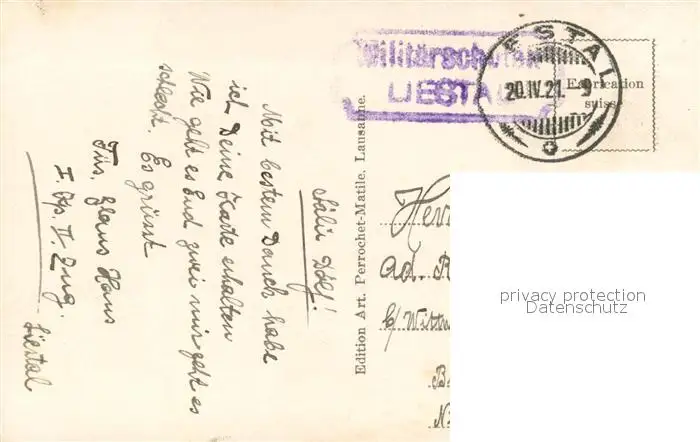 Militärschulen
LIESTAL
LIESTAL
20.IV.21. 9
Fabrication
suisse
Edition Art. Perrochet-Matile, Lausanne.
Salü Dölf!
Mit bestem Danck habe
ich Deine Karte erhalten
Wie geht es Eud zwei mir geht es
schlecht. Es grüsst
Füs. Glaus Hans
I. Kp. II. Zug.
Liestal
Herr
Ad. R
c/ Wittm
B
N
privacy protection
Datenschutz